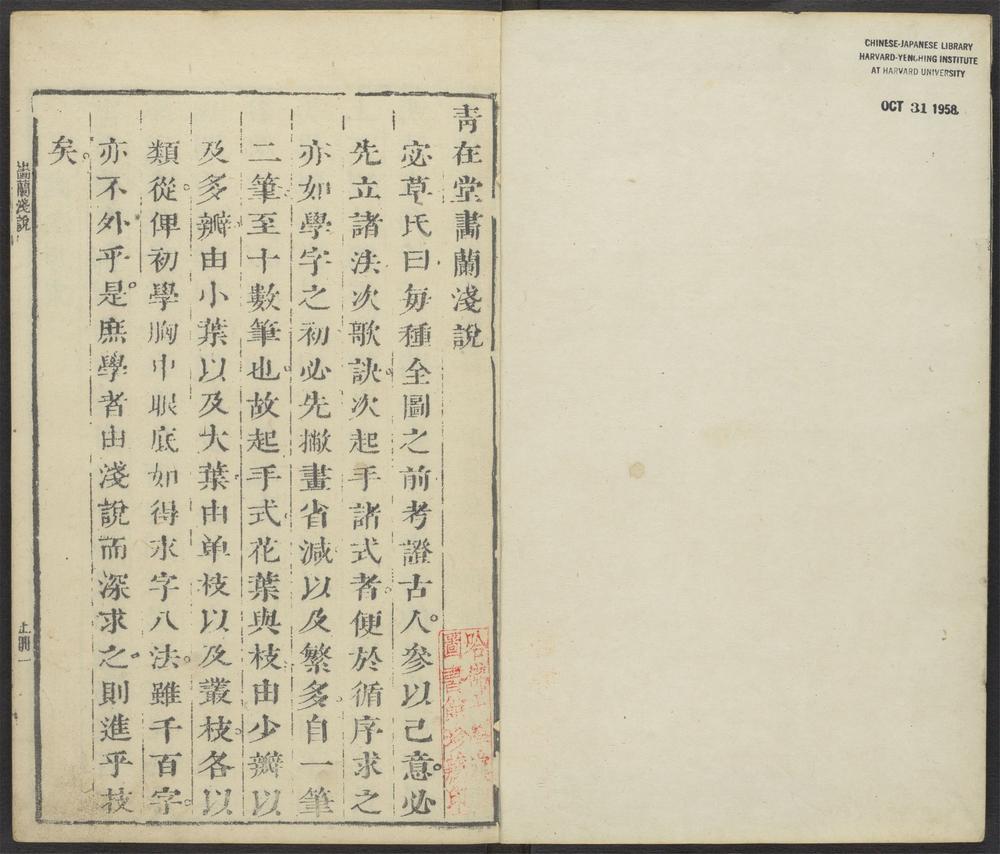 CHINESE-JAPANESE LIBRARY
HARVARD-YENCHING INSTITUTE
AT HARVARD UNIVERSITY
OCT 31 1958
青在堂畵蘭淺說
宓草氏曰每種全圖之前考證古人。參以己意。必
先立諸法次歌訣。次起手諸式者。便於循序求之
亦如學字之初必先撇畫省減。以及繁多。自一筆
二筆至十數筆也。故起手式。花葉與枝由少瓣以
及多瓣。由小葉以及大葉。由单枝以及叢枝。各以
類從。俾初學胸中眼底如得永字八法。雖千百字。
亦不外乎是。庶學者由淺說而深求之。則進乎技
矣。
畵蘭淺說
上冊一
圖書館珍藏印